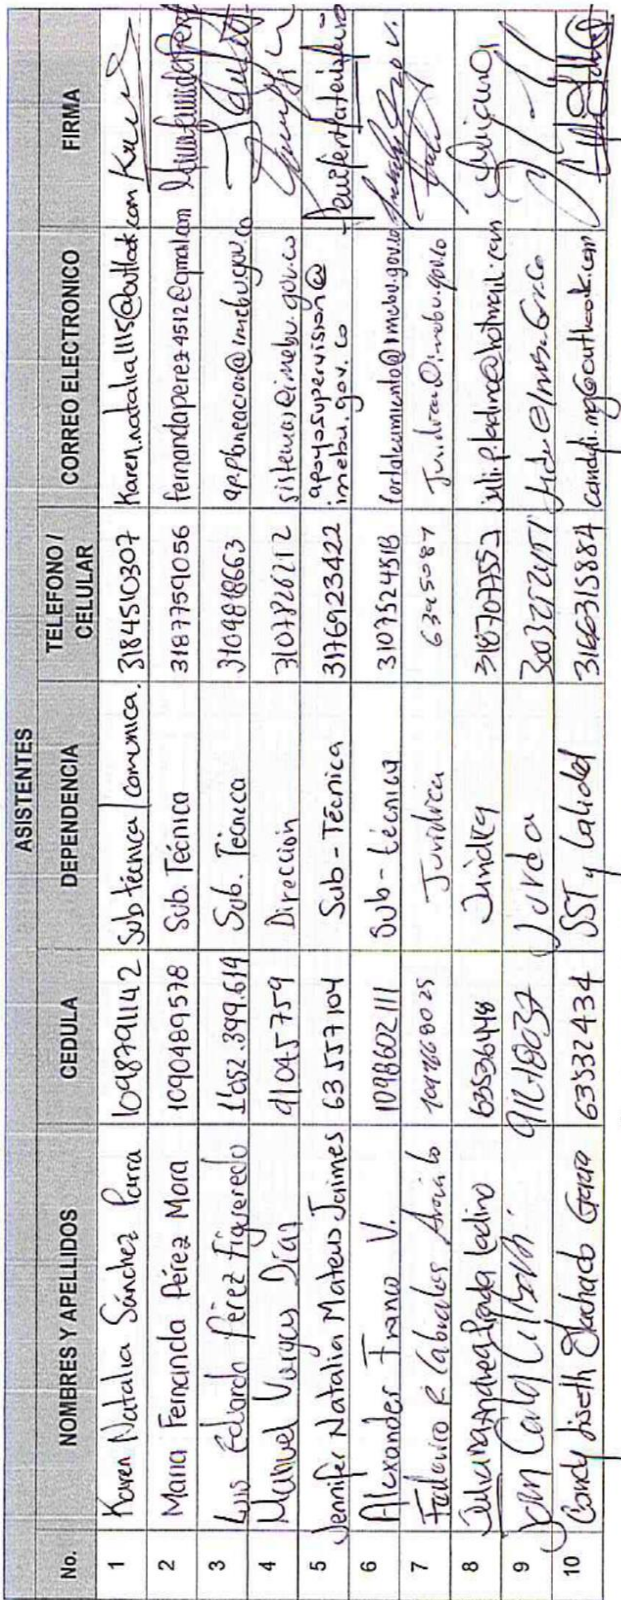 ASISTENTES
No. NOMBRES Y APELLIDOS CEDULA DEPENDENCIA TELEFONO / CELULAR CORREO ELECTRONICO FIRMA
1 Karen Natalia Sánchez Parra 1098791142 Sub técnica / comunica. 3184510307 Karen.natalia115@outlook.com Karen
2 Maria Fernanda Pérez Mora 1090489578 Sub. Técnica 3187759056 fernandaperez4512@gmail.com
3 Luis Eduardo Pérez Figueredo 1'052.399.619 Sub. Técnica 3109818663 ap.planeacion@imebu.gov.co
4 Manuel Vargas Díaz 91045759 Dirección 3107826212 sistemas@imebu.gov.co
5 Jennifer Natalia Mateus Jaimes 63557104 Sub-Técnica 3176923422 apoyosupervision@
imebu.gov.co
6 Alexander Franco V. 1098602111 Sub-técnica 3107524518 fortalecimiento@imebu.gov.co
7 Federico R Cabrales Araújo Juridica 6345087 Juridica@imebu.gov.co
8 Juliana Andrea Prada Ladino 63536448 3187077552 Juliana
9 Juan Carlos
10 Candy Liseth Machado Garcia 63532434 SST y Calidad 3166315884 candyli.mg@outlook.com